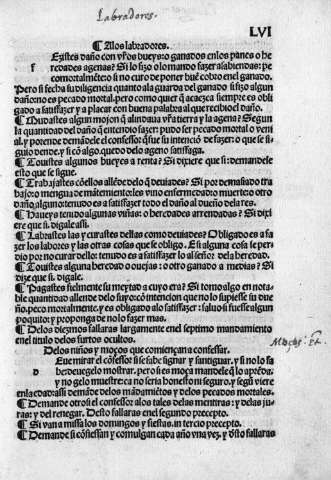 Labradores.
LVI
¶ A los labradores.
Ezistes daño con vr̃os bueyes: o ganados en los panes o he
redades agenas? Si lo fizo o lo mando fazer a sabiendas: pe
co mortalmẽte: si no curo de poner buẽ cobro en el ganado.
Pero si fecha su diligencia quanto ala guarda del ganado si fizo algun
daño: no es pecado mortal. pero como quier q̃ acaezca siempre es obli
gado a satisfazer y a placar con buena palabra al que recibio el daño.
¶ Mudastes algun mojon q̃ alindaua vr̃a tierra y la agena? Segun
la quantidad del daño q̃ entendio fazer: pudo ser pecado mortal o veni
al. y porende demãde el confessor q̃ fue su intenciõ de fazer: o que se si
guio dende. y si cõ algo quedo delo ageno satisfaga.
¶ Touistes algunos bueyes a renta? Si dixiere que si: demandele
esto que se sigue.
¶ Trabajastes cõellos allẽde delo q̃ deuiades? Si por demasiado tra
bajo: o mengua de mãtenimiẽto: les vino enfermedad o muerte o otro
daño alguno: tenudo es a satisfazer todo el daño al dueño dela res.
¶ Houeys tenudo algunas viñas: o heredades arrendadas? Si dixi
ere que si. digale assi.
¶ Labrastes las y curastes dellas como deuiades? Obligado es a fa
zer los labores y las otras cosas que se obligo. Es alguna cosa se perdio
por no curar dello: tenudo es a satisfazer lo al señor dela heredad.
¶ Touistes alguna heredad o ouejas: o otro ganado a medias? Si
dize que si. digale.
¶ Pagastes fielmente su meytad a cuyo era? Si tomo algo en nota
ble quantidad allende delo suyo: cõ intencion que no lo supiesse su due
ño. peco mortalmente. y es obligado alo satisfazer: saluo si fuesse algun
poquito: y proponga de no lo fazer mas.
¶ Delos diezmos fallaras largamente en el septimo mandamiento
en el titulo delos furtos ocultos.
Delos niños y moços que comiençan a confessar.
Moços. &c.
Eue mirar el cõfessor si se sabe signar y santiguar. y si no lo sa
be deuegelo mostrar. pero si es moça mandele q̃ lo aprẽda:
y no gelo muestre: ca no seria honesto ni seguro. y segũ viere
en la edad: assi demãde delos mãdamiẽtos y delos pecados mortales.
¶ Demande otrosi el confessor alos tales delas mentiras: y delas ju
ras: y del renegar. Desto fallaras enel segundo precepto.
¶ Si van a missa los domingos y fiestas. in tercio precepto.
¶ Demande si cõfiessan y comulgan cada año vna vez. y d̃sto fallaras